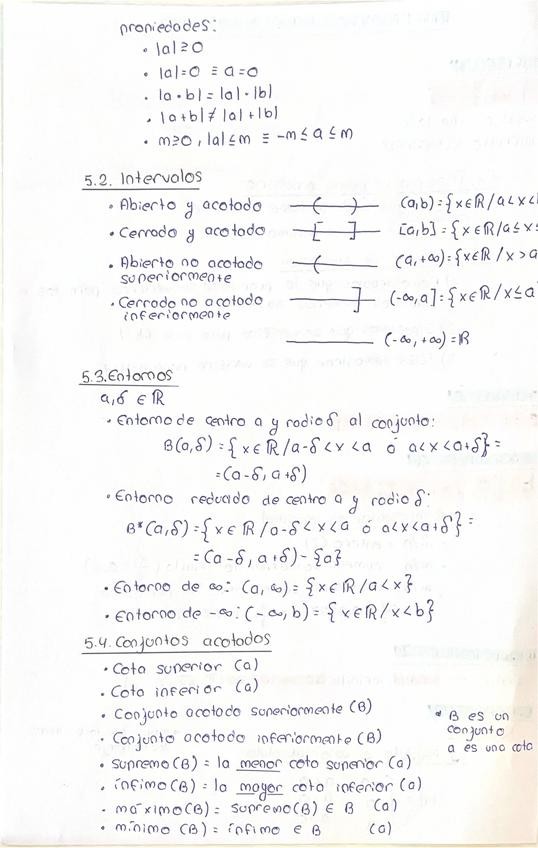 propiedades:
· |a| ≥ 0
· |a| = 0 ≡ a = 0
· |a · b| = |a| · |b|
· |a + b| ≠ |a| + |b|
· m ≥ 0, |a| ≤ m ≡ -m ≤ a ≤ m
5.2. Intervalos
· Abierto y acotado ( ) (a,b) = {x ∈ ℝ / a < x < b
· Cerrado y acotado [ ] [a,b] = {x ∈ ℝ / a ≤ x ≤
· Abierto no acotado superiormente ( (a, +∞) = {x ∈ ℝ / x > a
· Cerrado no acotado inferiormente ] (-∞, a] = {x ∈ ℝ / x ≤ a
(-∞, +∞) = ℝ
5.3. Entornos
a, δ ∈ ℝ
· Entorno de centro a y radio δ al conjunto:
B(a, δ) = {x ∈ ℝ / a - δ < x < a ó a < x < a + δ} =
= (a - δ, a + δ)
· Entorno reducido de centro a y radio δ:
B*(a, δ) = {x ∈ ℝ / a - δ < x < a ó a < x < a + δ} =
= (a - δ, a + δ) - {a}
· Entorno de ∞: (a, ∞) = {x ∈ ℝ / a < x}
· Entorno de -∞: (-∞, b) = {x ∈ ℝ / x < b}
5.4. Conjuntos acotados
· Cota superior (a)
· Cota inferior (a)
· Conjunto acotado superiormente (B)
· Conjunto acotado inferiormente (B)
* B es un
conjunto
a es una cota
· supremo (B) = la menor cota superior (a)
· ínfimo (B) = la mayor cota inferior (a)
· máximo (B) = supremo (B) ∈ B (a)
· mínimo (B) = ínfimo ∈ B (a)